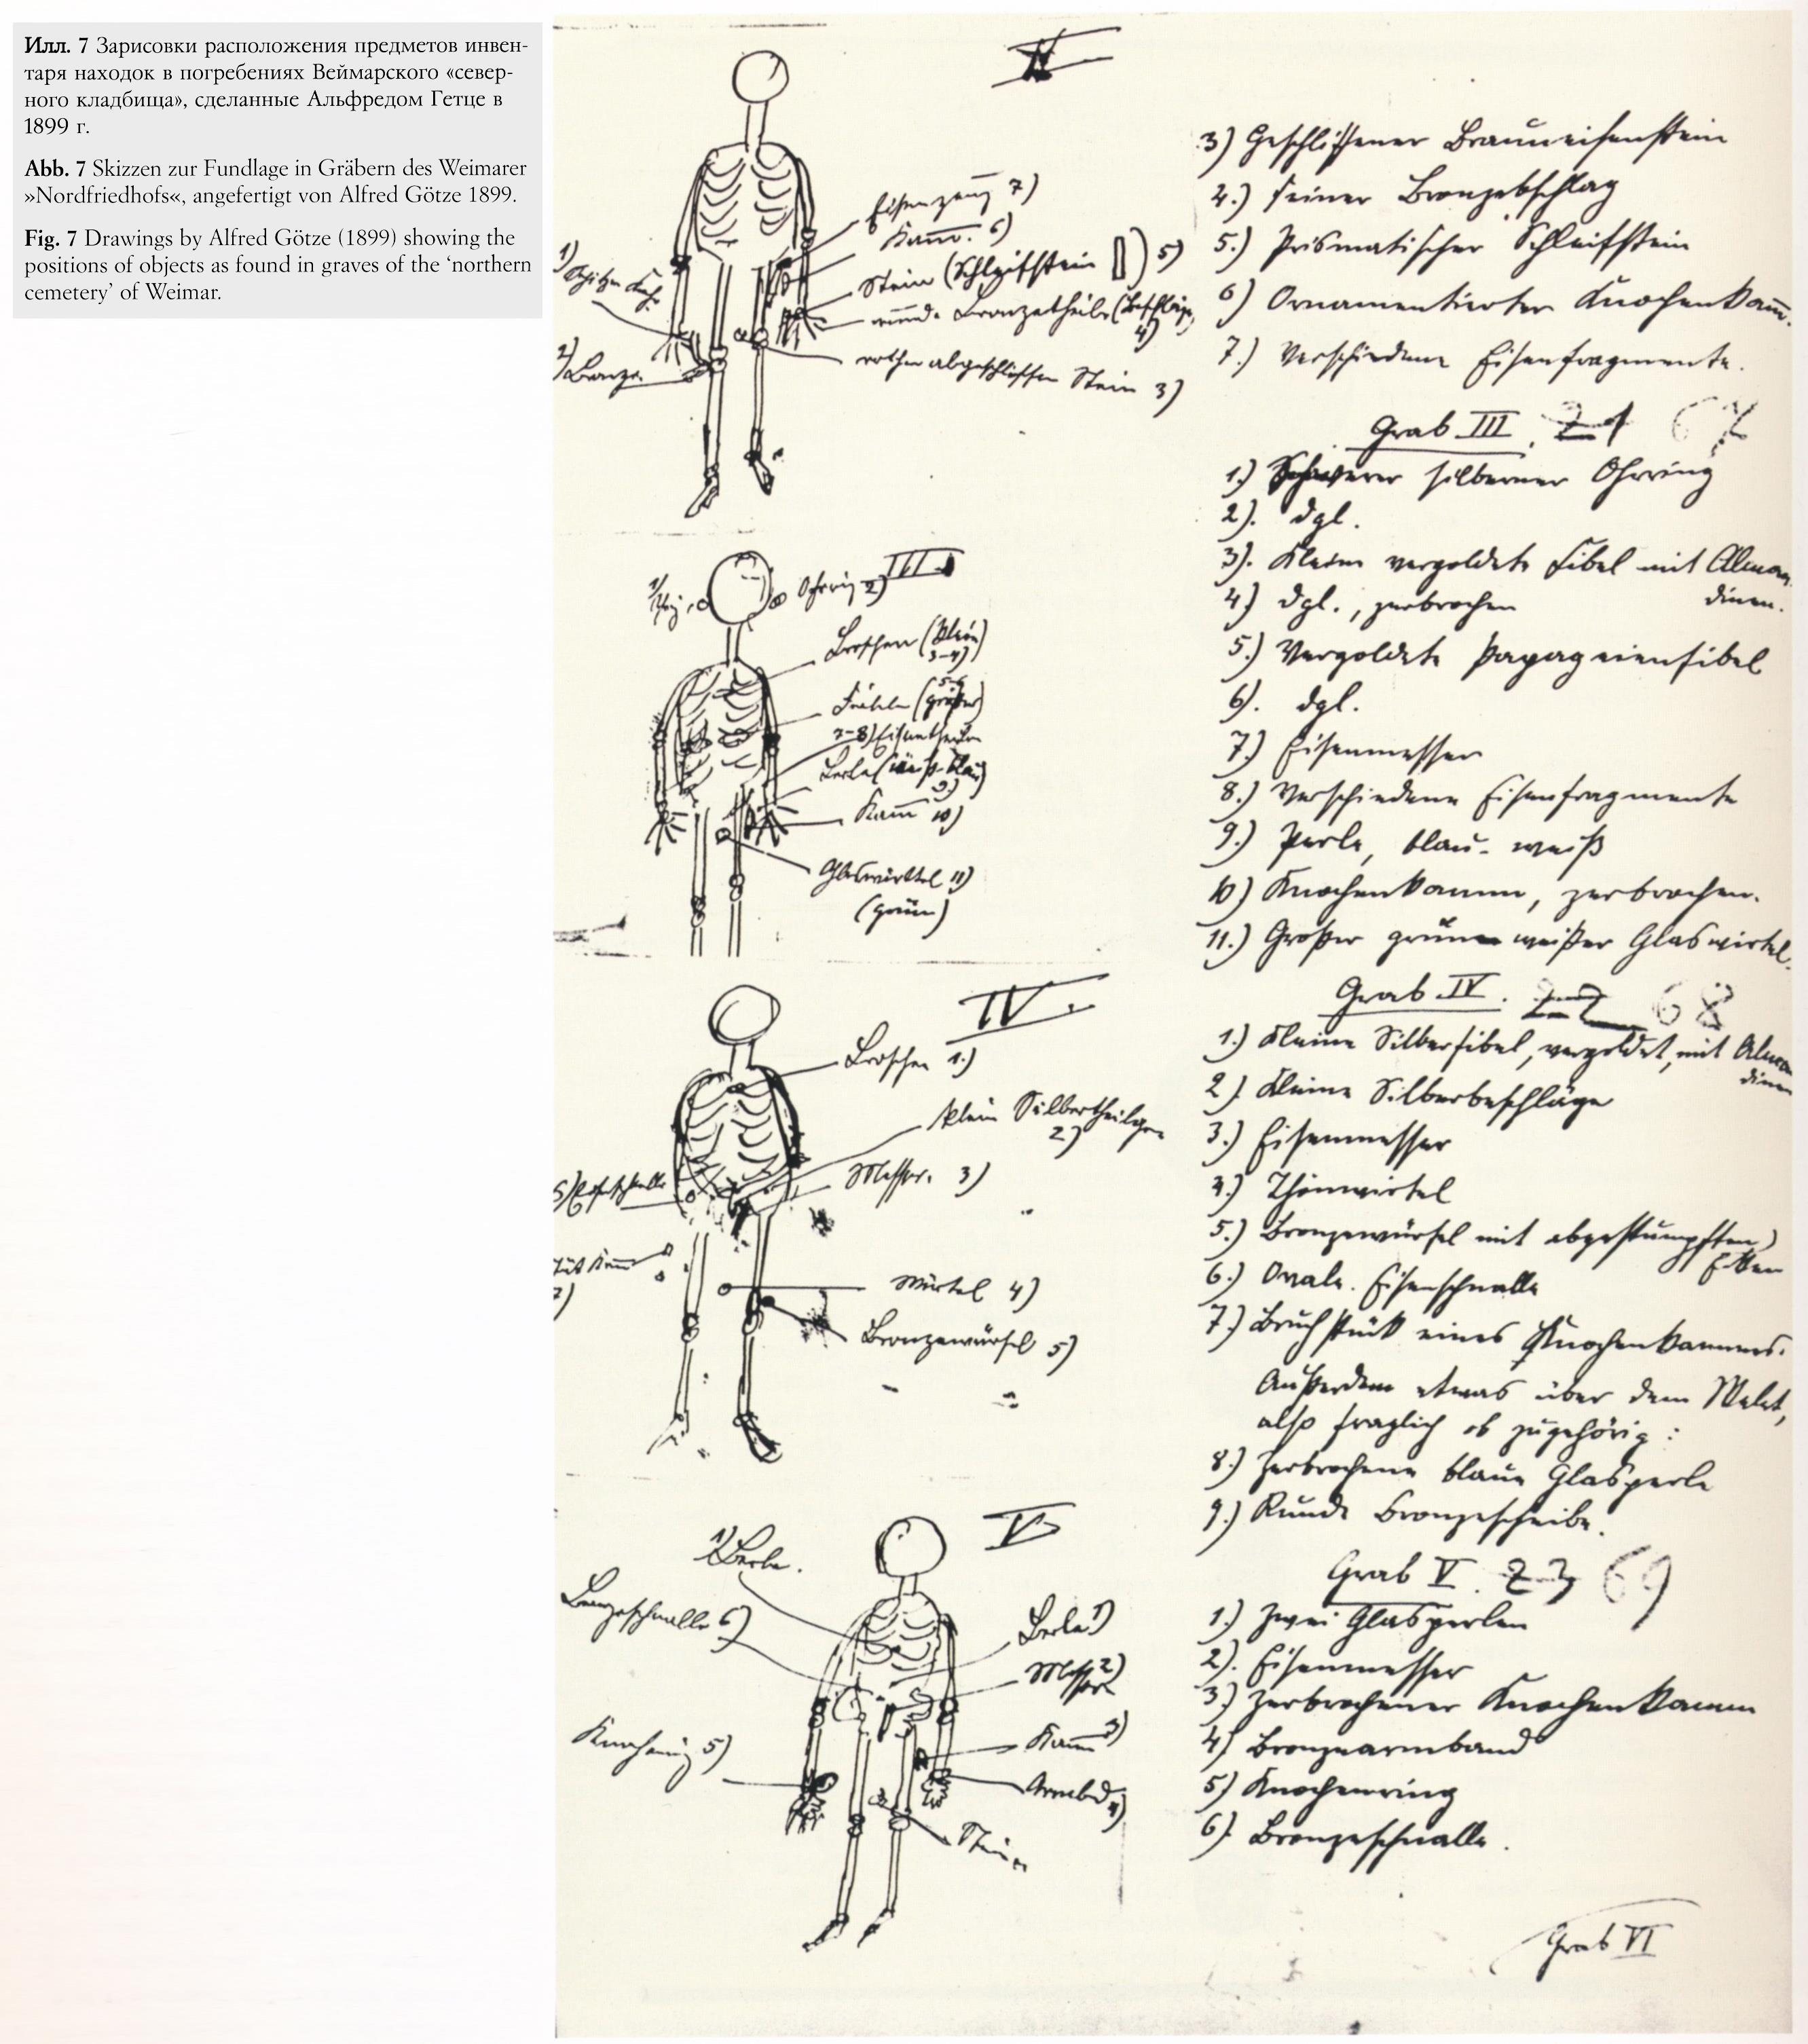 Илл. 7 Зарисовки расположения предметов инвен-
таря находок в погребениях Веймарского «север-
ного кладбища», сделанные Альфредом Гетце в
1899 г.
Abb. 7 Skizzen zur Fundlage in Gräbern des Weimarer
»Nordfriedhofs«, angefertigt von Alfred Götze 1899.
Fig. 7 Drawings by Alfred Götze (1899) showing the
positions of objects as found in graves of the ‘northern
cemetery’ of Weimar.
Eisenzeug 7)
Kam̅. 6)
Stein (Schleifstein 5)
Bronzetheile (Beschläge, 4)
rother abgeschliffen Stein 3)
1)
2) Bronze
III
Ohrring 2)
1)
Broschen (klein)
3-4)
Fibeln (größer)
5-6
7-8) Eisentheile
Perle (weiß-blau)
9)
Kam̅ 10)
Glaswirtel 11)
(grün)
IV
Broschen 1.)
klein Silbertheilchen
2)
Messer. 3)
Wirtel 4)
Bronzewürfel 5)
V
1) Perle.
Bronzeschnalle 6)
Perle 1)
Messer 2)
Kam̅ 3)
Armbd 4)
Knochenring 5)
Stein
3) Geschliffener Brauneisenstein
4.) feiner Bronzebschlag
5.) Prismatischer Schleifstein
6) Ornamentierter Knochenkam̅.
7.) Verschiedene Eisenfragmente.
Grab III. 21 67
1.) Schwerer silberner Ohrring
2). dgl.
3). Kleine vergoldete Fibel mit Alman
dinen.
4) dgl., zerbrochen
5.) Vergoldete Papageienfibel
6). dgl.
7.) Eisenmesser
8.) Verschiedene Eisenfragmente
9.) Perle, blau-weiß
10) Knochenkamm, zerbrochen.
11.) Großer grün weißer Glaswirtel.
Grab IV. 22 68
1.) Kleine Silberfibel, vergoldet, mit Alman
dinen
2.) Kleine Silberbeschläge
3.) Eisenmesser
4.) Thonwirtel
5.) Bronzewürfel mit abgestumpften
Ecken
6.) Ovale Eisenschnalle
7.) Bruchstück eines Knochenkammes.
Außerdem etwas über dem Skelet,
also fraglich ob zugehörig:
8.) Zerbrochene blaue Glasperle
9.) Runde Bronzescheibe.
Grab V. 23 69
1.) Zwei Glasperlen
2). Eisenmesser
3.) Zerbrochener Knochenkamm
4) Bronzearmband
5) Knochenring
6). Bronzeschnalle.
Grab VI